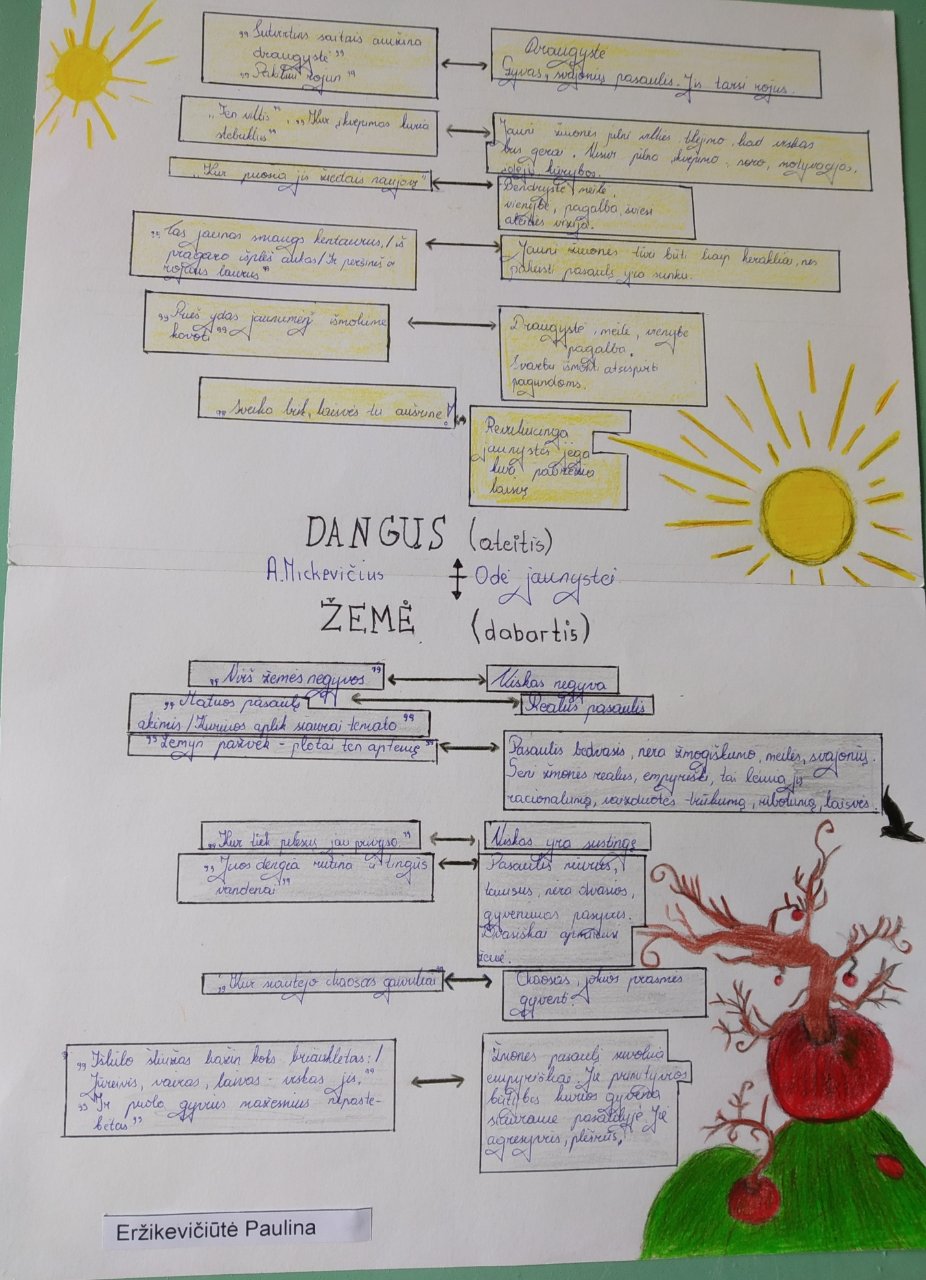 „Sutvirtins saitais auksina
draugystė”
„Paktim rojun”
Draugystė
Gyvas, svajonių pasaulis. Jis tarsi rojus.
„Ten viltis”, „Kur įkvėpimas kuria
stebuklus”
Jauni žmonės pilni vilties, tikėjimo, kad viskas
bus gerai. Kupini pilno įkvėpimo, noro, motyvacijos,
idėjų, kūrybos.
„Kur puošia jis žiedais naujovę”
Bendrystė, meilė,
vienybė, pagalba, šviesi
ateities vizija.
„Tas jaunas smaugs kentaurus,/iš
pragaro išplėš aukas/Ir peršinės
rojaus laurus”
Jauni žmonės turi būti kaip herakliai, nes
pakeisti pasaulį yra sunku.
„Prieš ydas jaunumėj išmokime
kovoti”
Draugystė, meilė, vienybė
pagalba.
Svarbu išmokti atsispirti
pagundoms.
„Sveika būk, laisvės tu aušrine!”
Revoliucinga
jaunystės jėga
kuri pabrėžia
laisvę
DANGUS (ateitis)
A.Mickevičius Odė jaunystei
ŽEMĖ (dabartis)
„Virš žemės negyvos”
Viskas negyva
„Matuos pasaulį
akimis/Kurios aplink siaurai temato”
Realus pasaulis
„Žemyn pažvelk - plotai ten aptemę”
Pasaulis bedvasis, nėra žmogiškumo, meilės, svajonių.
Seni žmonės realūs, empyriški, tai lemia jų
racionalumą, vaizduotės trūkumą, ribotumą, laisvės.
„Kur tiek pelėsių jau priviso”
Viskas yra sustingę
„Juos dengia rutina ir tingūs
vandenai”
Pasaulis niūrus,
tamsus, nėra dvasios,
gyvenimas pasyvus.
Dvasiškai apmirusi
žemė.
„Kur siautėjo chaosas gaivališkai”
Chaosas, jokios prasmės
gyventi.
„Iškilo šliužas kažin koks briaukletas:/
Jūreivis, vairas, laivas - viskas jis.”
„Ir puola gyvius mažesnius nepaste-
bėtas”
Žmonės pasaulį suvokia
empyriškai. Jie primityvios
būtybės kurios gyvena
siaurame pasaulyje. Jie
agresyvūs, plėšrūs.
Eržikevičiūtė Paulina